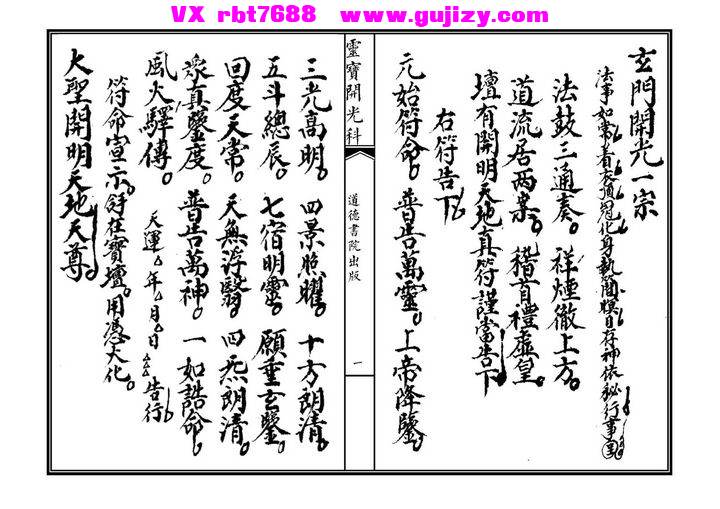 VX rbt7688 www.gujizy.com
玄門開光一宗
法事如常着衣頂冠化身執簡瞑目存神依秘行事
法鼓三通奏。祥煙徹上方。
道流居两案。稽首禮虛皇。
壇有開明天地真符謹當告下
右符告下
元始符命。普告萬靈。上帝降鑒。
靈寶開光科
道德書院出版
一
三光高明。四景照耀。十方朗清。
五斗總辰。七宿明靈。願垂玄鑒。
回度天常。天無浮翳。四炁朗清。
衆真鑒度。普告萬神。一如誥命。
風火驛傳。
天運 年 月 日 告行
符命宣示。舒在寶壇。用憑大化。
大聖開明天地天尊。